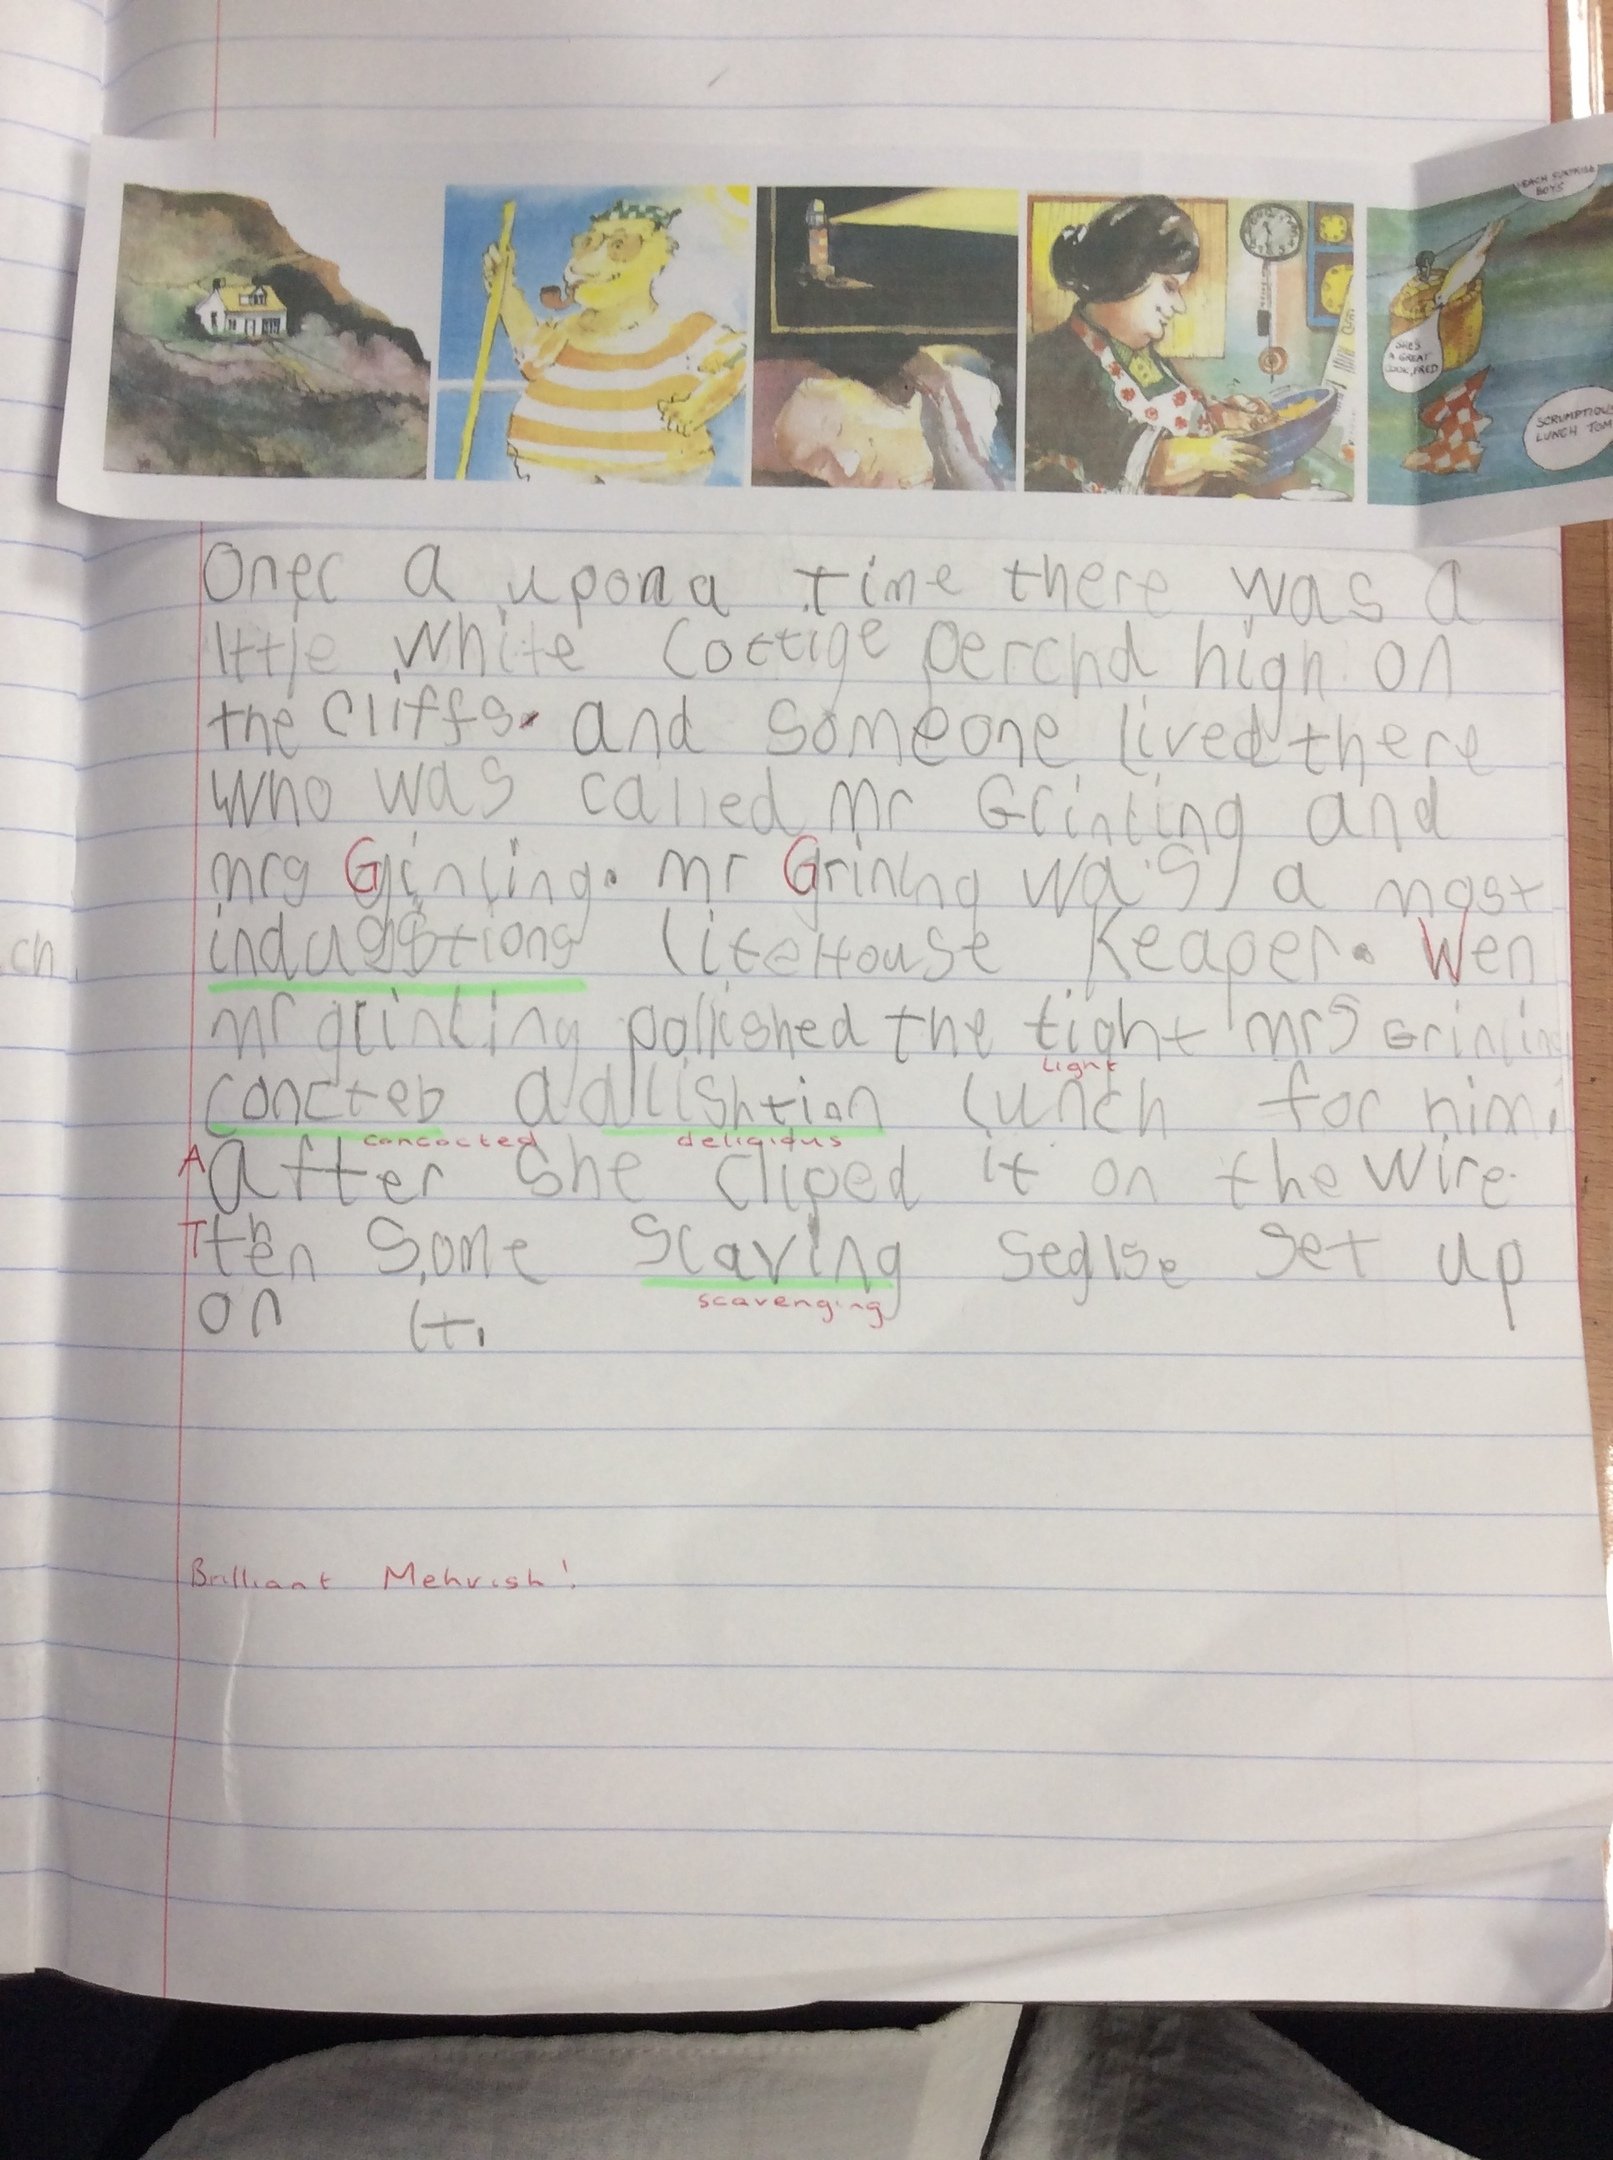 EACH SURPRISE
BOYS
SHE'S
A GREAT
COOK, FRED
SCRUMPTIOUS
LUNCH TOM
Onec a upon a time there was a
little white cottige perchd high on
the cliffs. and someone lived there
who was called mr Grinling and
mrs Grinling. mr Grinlng was a most
litehouse Keaper. Wen
mr grinling pollished the light mrs Grinling
light
concteb a dlishtion lunch for him.
concocted deligious
A after she cliped it on the wire.
T then some scaving seglse set up
scavenging
on it.
ch
Brilliant Mehvish!